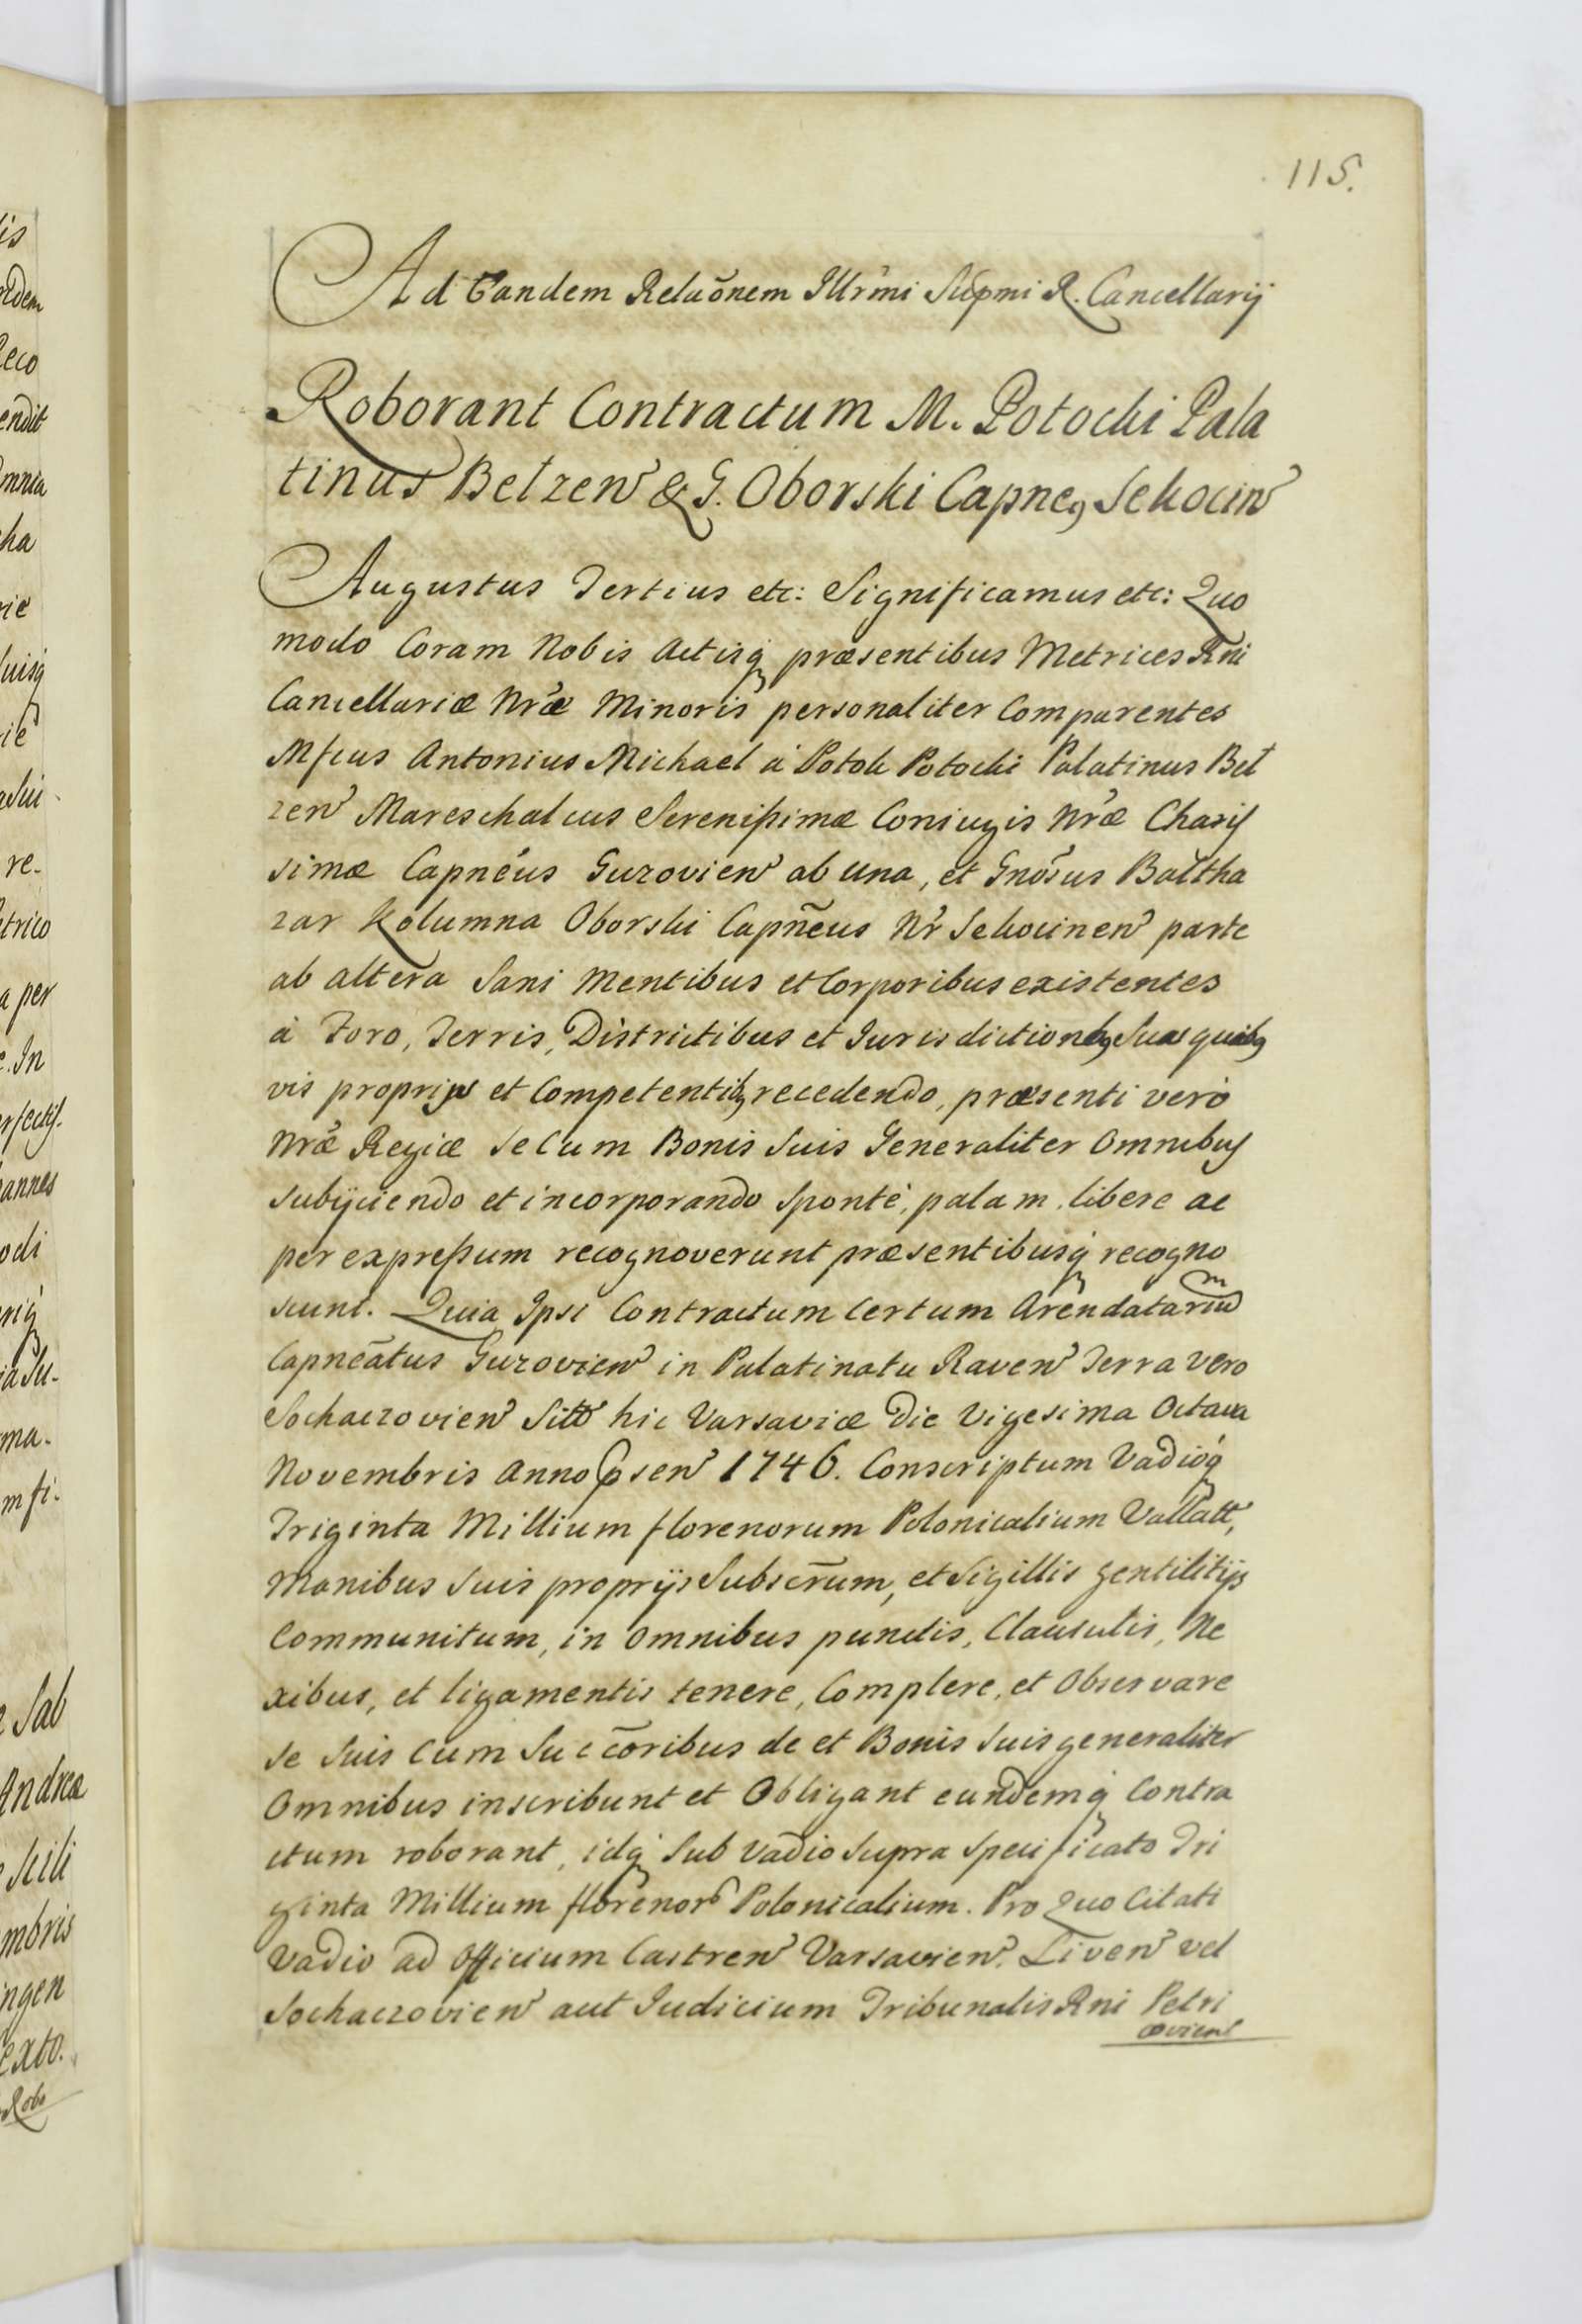 115.
Ad Eandem Relaõnem Illr̃mi Supmi R. Cancellarij
Roborant Contractum M. Potocki Pala
tinus Betzen̉ & G. Oborski Capneꝯ Sekocin̉
Augustus Tertius etc: Significamus etc: Quo
modo Coram Nobis Actisq́ præsentibus Metrices Rni
Cancellariæ Nr̃æ Minoris personaliter Comparentes
Mfcus Antonius Michael á Potok Potocki Palatinus Bel
zen̉ Mareschalcus Serenißimæ Coniugis Nr̃æ Charis
simæ Capnéus Guzovien̉ ab una, et Gnõsus Baltha
zar Kolumna Oborski Capñeus Nr̃ Sekocinen̉ parte
ab altera Sani Mentibus et Corporibus existentes
á Foro, Terris, Districtibus et Iurisdictionbꝯ Suis quibꝯ
vis proprijs et Competentibꝯ recedendo, præsenti veró
Nr̃æ Regiæ se Cum Bonis Suis Generaliter Omnibus
Subijciendo et incorporando Sponté, palam, libere ac
per expreßum recognoverunt præsentibusq́ recogno
scunt. Quia Ipsi Contractum Certum Arendatarium
Capneãtus Guzovien̉ in Palatinatu Raven̉ Terra Vero
Sochaczovien̉ Sitt̉ hic Varsaviæ Die Vigesima Octava
Novembris Anno p̃sen̉ 1746. Conscriptum Vadioq́
Triginta Millium florenorum Polonicalium Vallatt̉,
Manibus Suis proprijs Subscr̃um, et Sigillis gentilitijs
Communitum, in Omnibus punctis, Clausulis, Ne
xibus, et ligamentis tenere, Complere, et Observare
Se Suis Cum Succõribus de et Bonis Suis generaliter
Omnibus inscribunt et Obligant eundemq́ Contra
ctum roborant, idq́ Sub Vadio Supra Specificato Tri
ginta Millium florenor̉ Polonicalium. Pro Quo Citati
Vadio ad Officium Castren̉ Varsavien̉. Liven̉ vel
Sochaczovien̉ aut Iudicium Tribunalis Rni Petri
covien̉